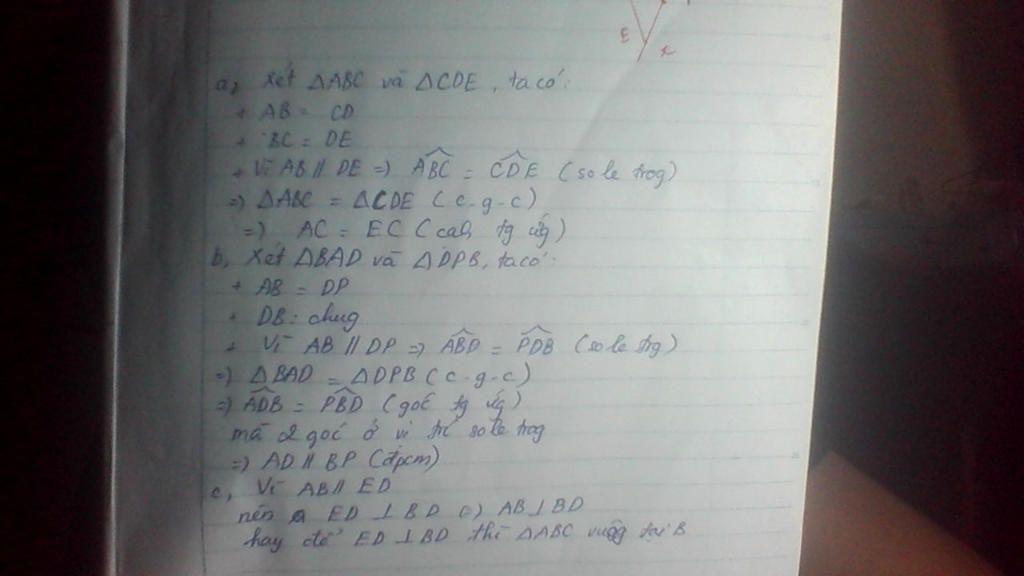 E x
a, Xét ΔABC và ΔCDE, ta có:
+ AB = CD
+ BC = DE
+ Vì AB // DE => ABC = CDE (so le trog)
=> ΔABC = ΔCDE (c-g-c)
=> AC = EC (cah tg ứg)
b, Xét ΔBAD và ΔDPB, ta có:
+ AB = DP
+ DB: chug
+ Vì AB // DP => ABD = PDB (so le trg)
=> ΔBAD = ΔDPB (c-g-c)
=> ADB = PBD (góc tg ứg)
mà 2 góc ở vị trí so le trog
=> AD // BP (đpcm)
c, Vì AB // ED
nên ED ⊥ BD (=) AB ⊥ BD
hay để ED ⊥ BD thì ΔABC vuôg tại B